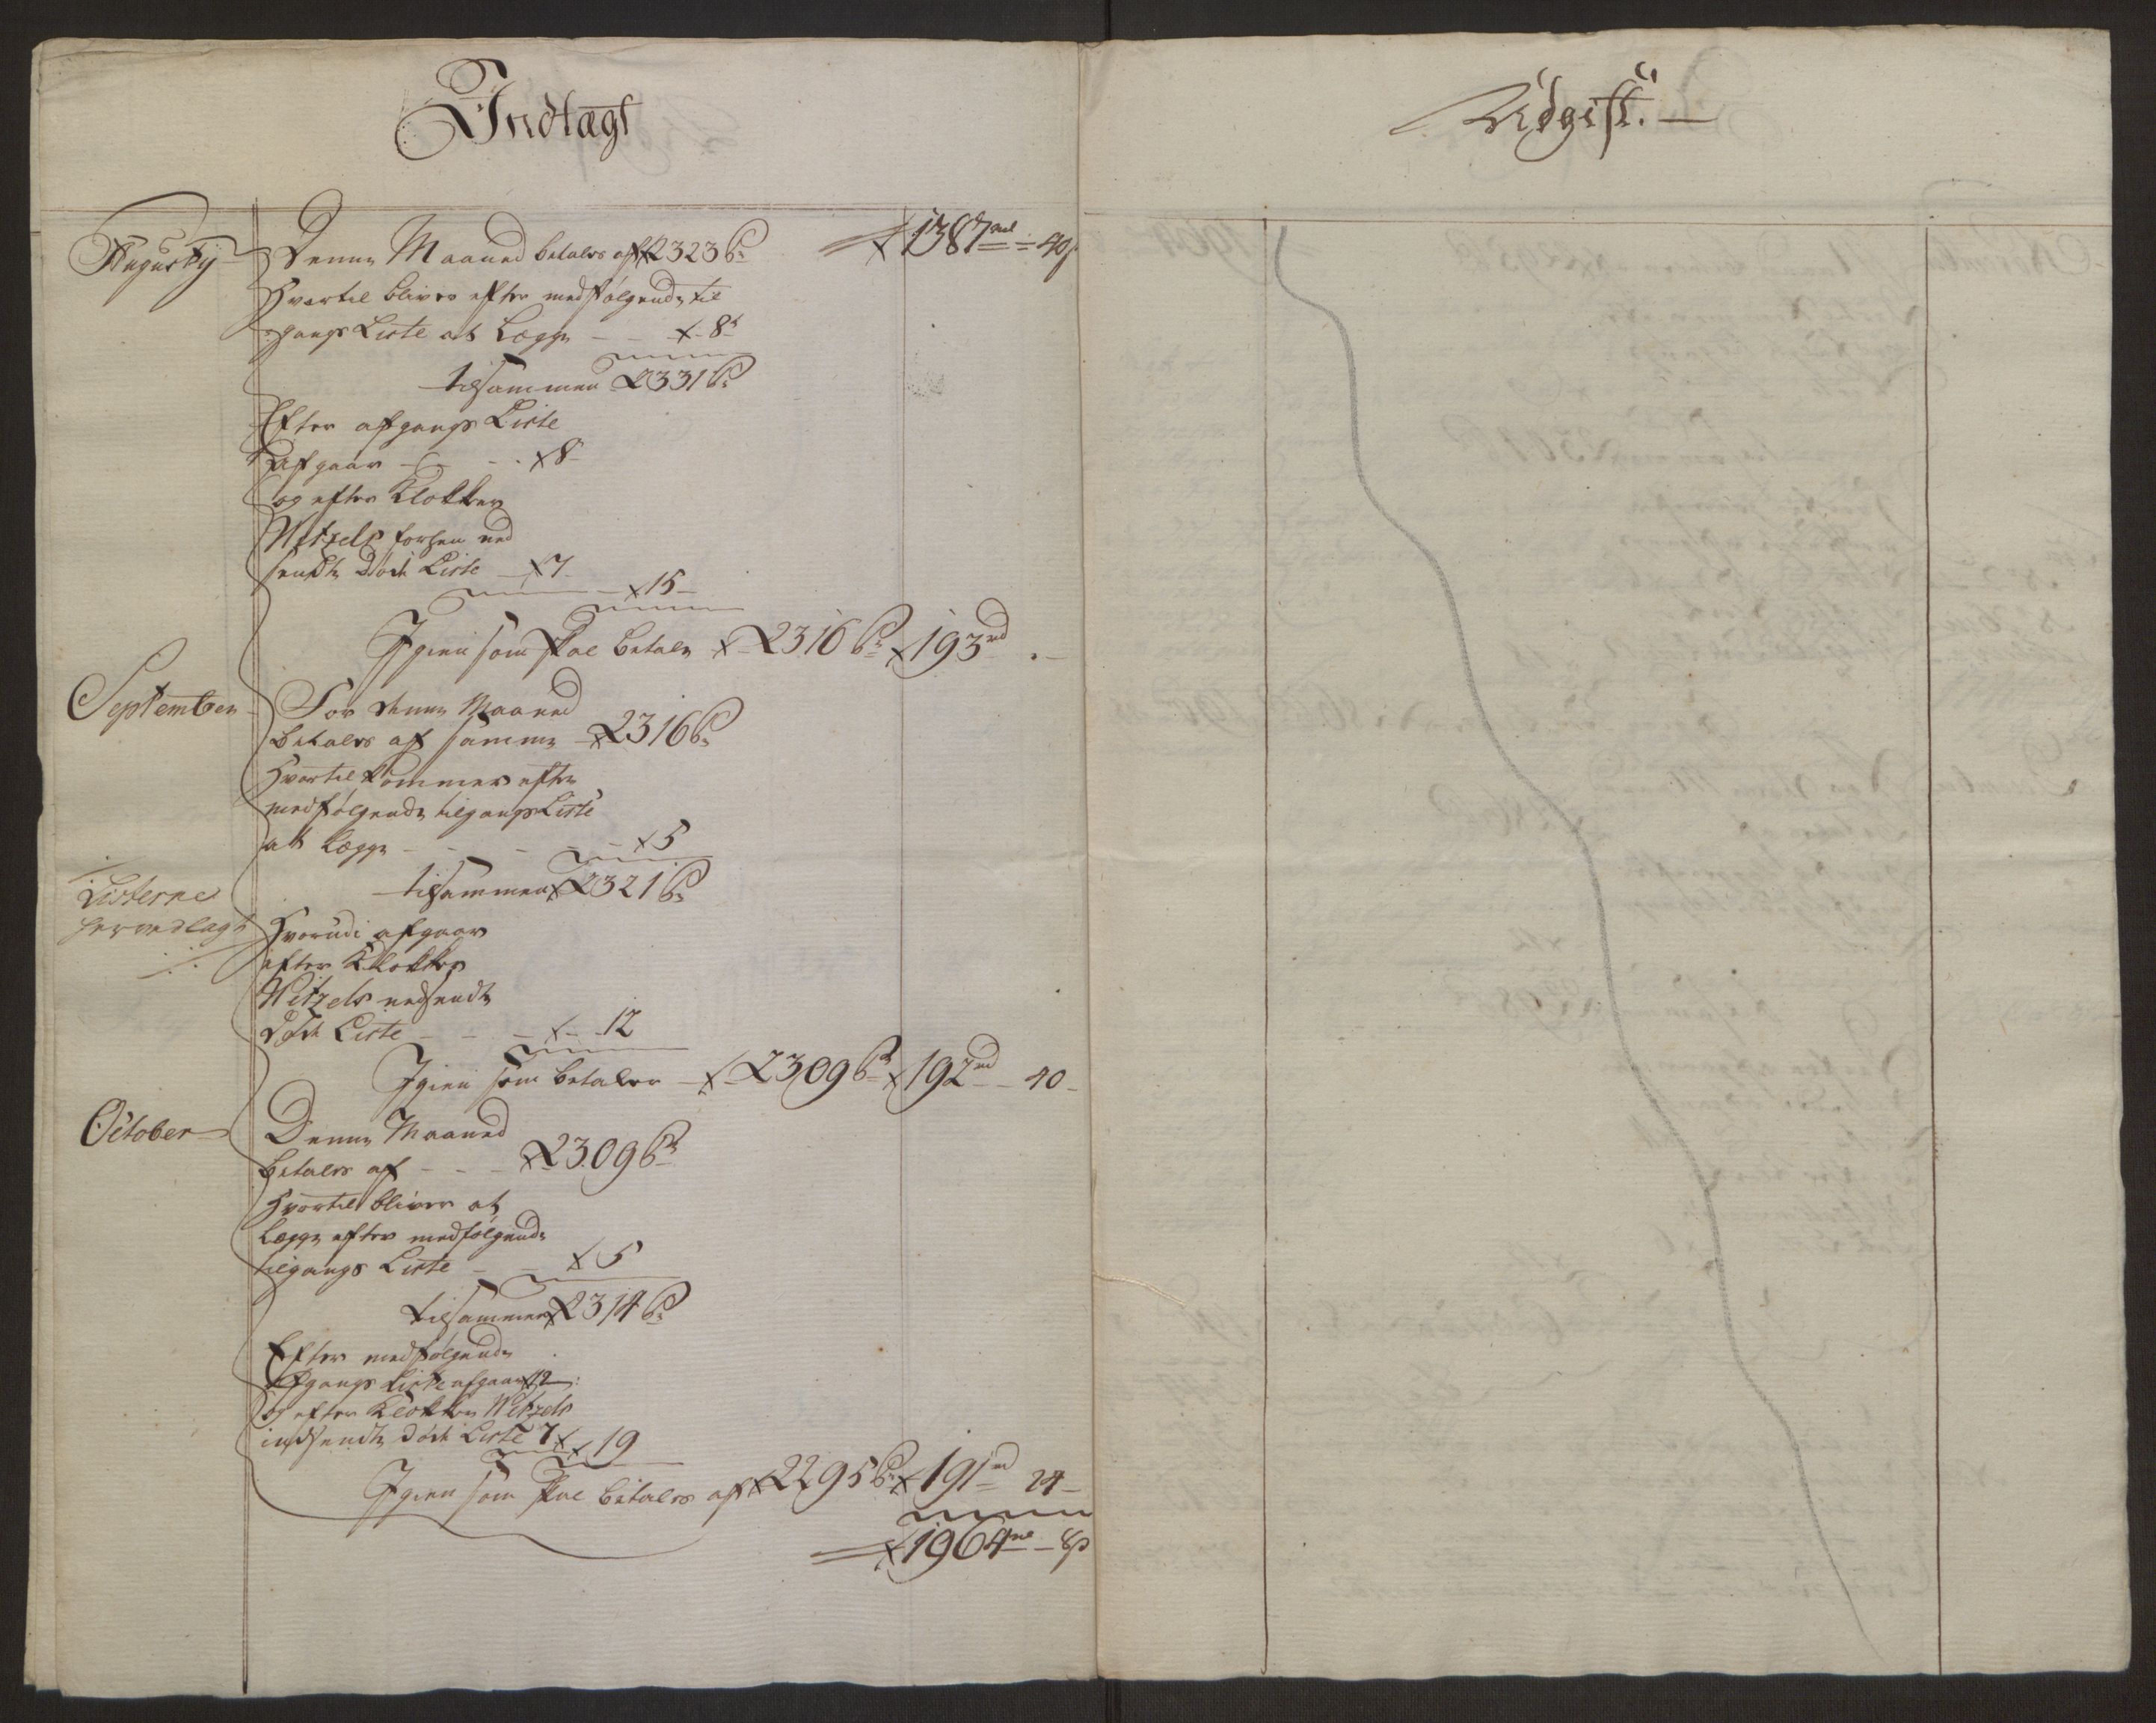 Indtægt
Augusty
Denne Maaned betales af 2323 P.
1387 rd - 40 s
Hvortil bliver efter medfølgende til
gangs Liste at Lægge - - 8
tilsammen 2331 P.
Efter afgangs Liste
afgaar - - - 8
og efter Klokker
Witzels forhen ned
sendte död Liste - 7
15
Igien som skal betale 2316 P. 193 rd . -
September
For denne Maaned
betales af samme 2316 P.
Hvortil kommer efter
medfølgende tilgangs Liste
at Lægge - - - - 5
tilsammen 2321 P.
Listerne
herved lagt
Hvorudi afgaar
efter Klokker
Witzels nedsendte
död Liste - - - 12
Igien som betaler - 2309 P. 192 rd - 40 -
October
Denne Maaned
betales af - - - 2309 P.
Hvortil bliver at
Lægge efter medfølgende
tilgangs Liste - - 5
tilsammen 2314 P.
Efter medfølgende
Afgangs Liste afgaar 12
og efter Klokker Witzels
indsendte död Liste 7
19
Igien som skal betales af 2295 P. 191 rd 24 -
1964 rd - 8 s
Udgift. -